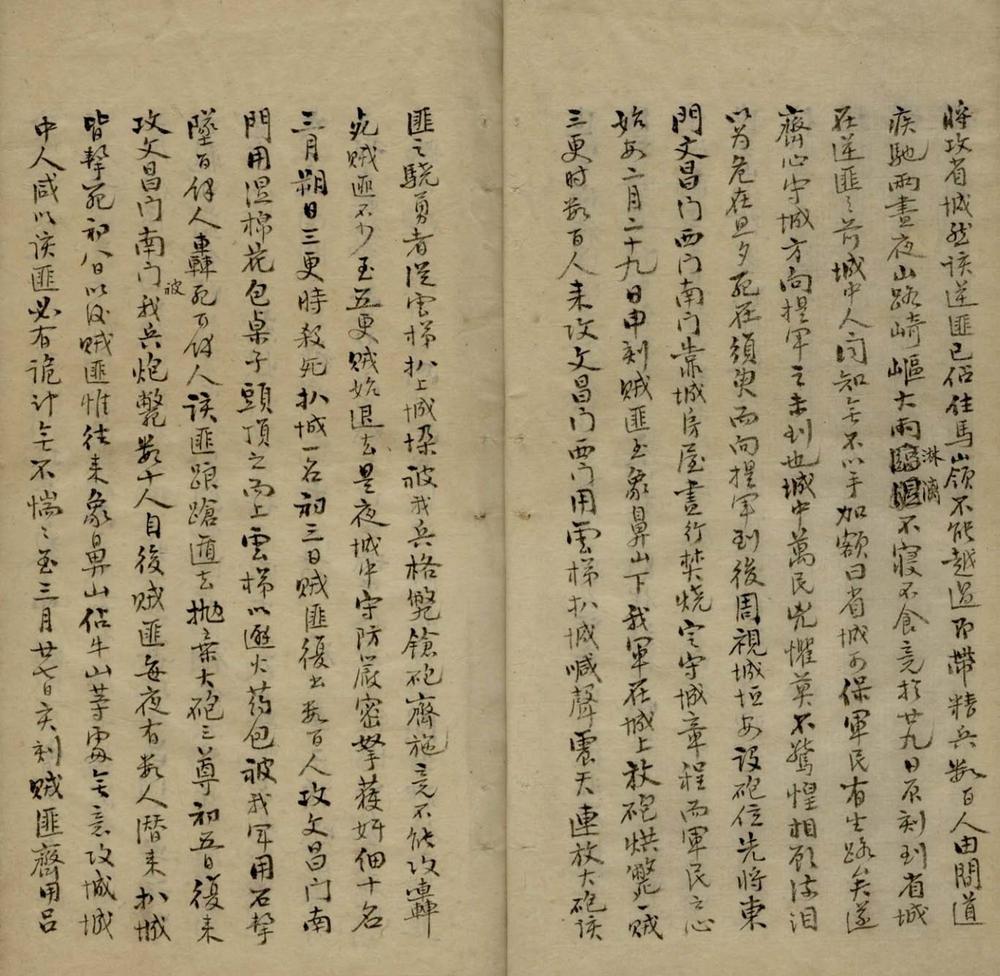 將攻省城然該逆匪已佔住馬山嶺不能越過即帶精兵数百人由間道
疾馳兩晝夜山路崎嶇大雨淋漓不寝不食竞於廿九日夘刻到省城
在逆匪之前城中人闻知無不以手加额曰省城可保軍民有生路矣遂
齊心守城方向提軍之未到也城中萬民兇懼莫不驚惶相顧流泪
以为危在旦夕死在須臾而向提軍到後周視城垣安設砲位先將東
門文昌门西门南门靠城房屋盡行焚烧定守城章程而軍民之心
始安二月二十九日申刻贼匪至象鼻山下我軍在城上放砲烘斃一贼
三更时数百人来攻文昌门西门用雲梯扒城喊聲震天連放大砲该
匪之驍勇者從雲梯扒上城垛被我兵格斃鎗砲齊施竞不能攻轟
死贼匪不少至五更贼始退去是夜城中守防嚴密拏获奸细十名
三月朔日三更時殺死扒城一名初三日贼匪復出数百人攻文昌门南
門用濕棉花包桌子頭頂之而上雲梯以避火药包被我军用石擊
墜百餘人轟死百餘人该匪踉蹌遁去抛棄大砲三尊初五日復来
攻文昌门南门被我兵炮斃数十人自後贼匪每夜有数人潛来扒城
皆擊死初八日以後贼匪惟往来象鼻山佔牛山等處無意攻城城
中人咸以该匪必有诡计無不惴之至三月廿七日亥刻贼匪齊用吕